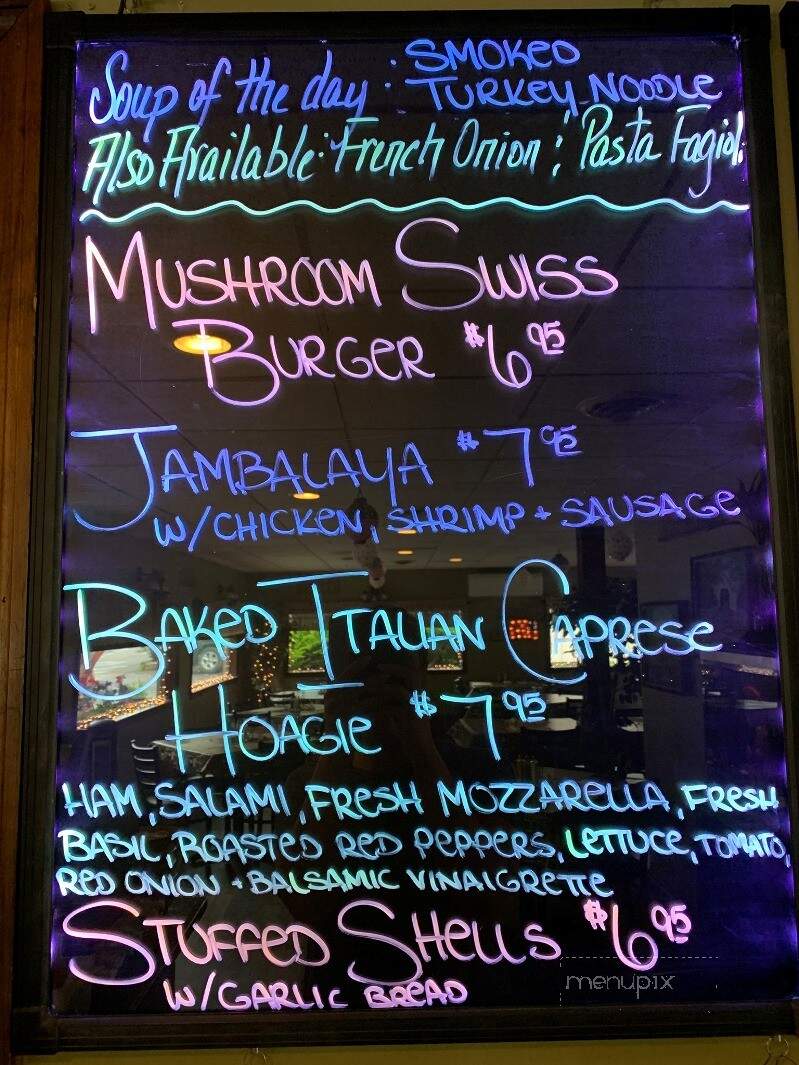 Soup of the day: SMOKED
TURKEY NOODLE
Also Available: French Onion; Pasta Fagioli
MUSHROOM SWISS
BURGER $6.95
JAMBALAYA $7.95
W/CHICKEN, SHRIMP + SAUSAGE
BAKED ITALIAN CAPRESE
HOAGIE $7.95
HAM, SALAMI, FRESH MOZZARELLA, FRESH
BASIL, ROASTED RED PEPPERS, LETTUCE, TOMATO,
RED ONION + BALSAMIC VINAIGRETTE
STUFFED SHELLS $6.95
W/GARLIC BREAD
menupix